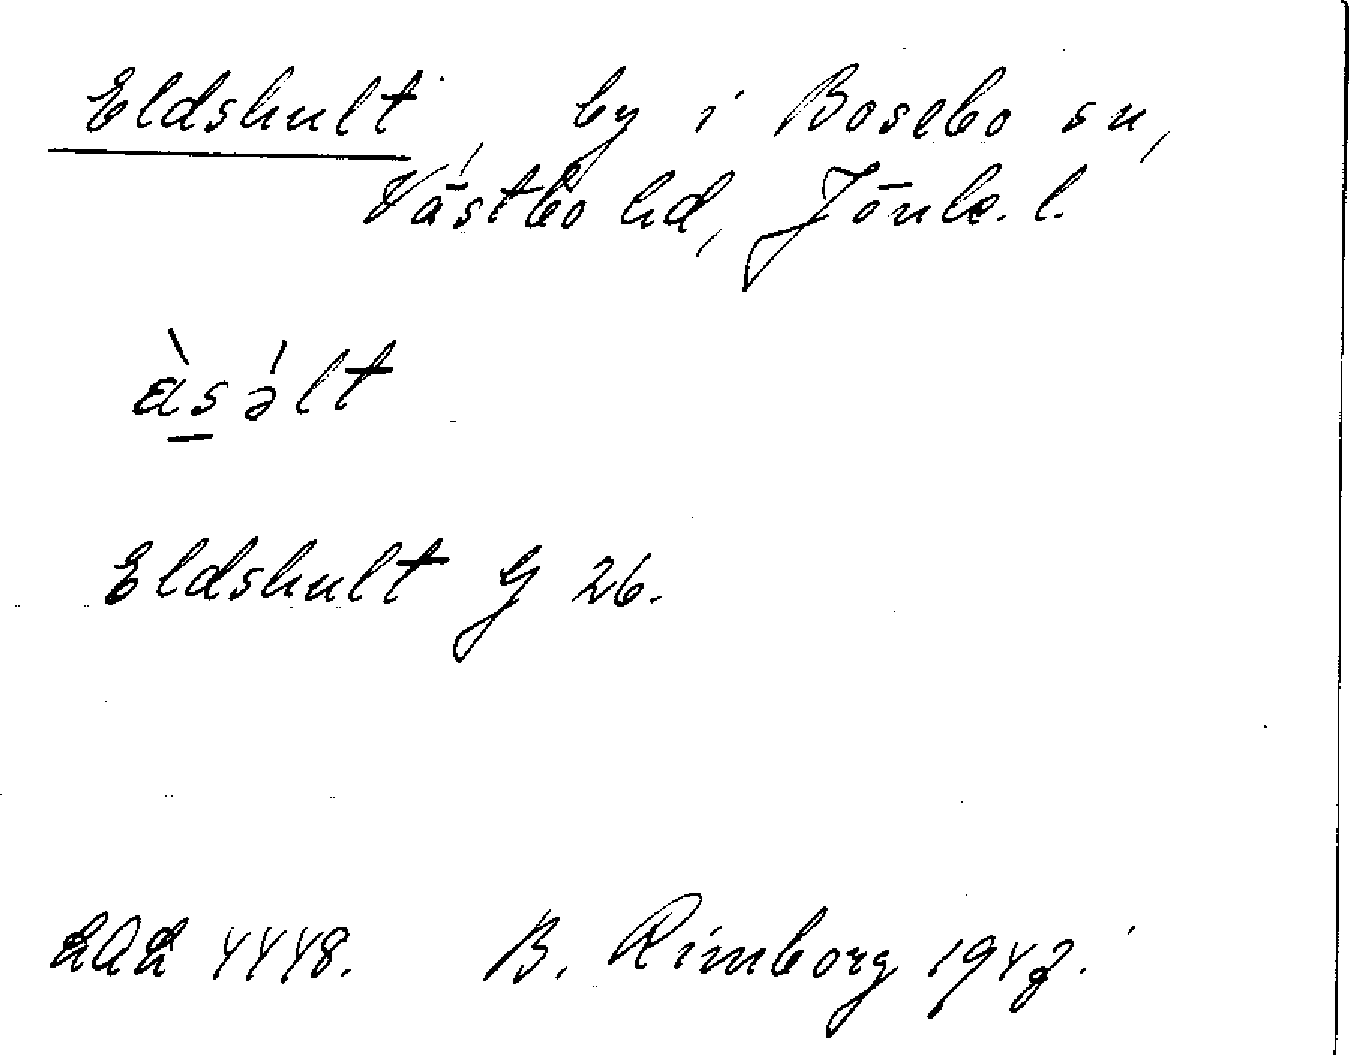 Eldshult, by i Bosebo sn,
Västbo hd, Jönk. l.
Eldshult G 26.
LAL 4448. B. Rimborg 1947.